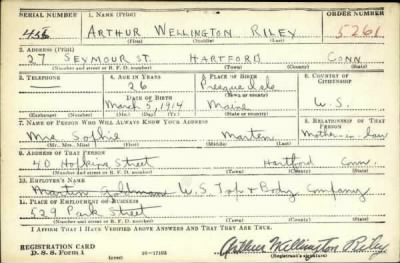 SERIAL NUMBER 1. NAME (Print) ORDER NUMBER
ARTHUR WELLINGTON RILEY 5261
(First) (Middle) (Last)
2. ADDRESS (Print)
27 SEYMOUR ST. HARTFORD CONN
(Number and street or R. F. D. number) (Town) (County) (State)
3. TELEPHONE 4. AGE IN YEARS 5. PLACE OF BIRTH 6. COUNTRY OF CITIZENSHIP
— 26 Presque Isle
DATE OF BIRTH (Town or county)
March 5, 1914 Maine U.S.
(Exchange) (Number) (Mo.) (Day) (Yr.) (State or country)
7. NAME OF PERSON WHO WILL ALWAYS KNOW YOUR ADDRESS 8. RELATIONSHIP OF THAT PERSON
Mrs Sophie Marten Mother-in-law
(Mr., Mrs., Miss) (First) (Middle) (Last)
9. ADDRESS OF THAT PERSON
40 Hopkins Street Hartford Conn.
(Number and street or R. F. D. number) (Town) (County) (State)
10. EMPLOYER'S NAME
Martin Goldman U.S Top & Body Company
11. PLACE OF EMPLOYMENT OR BUSINESS
529 Park Street
(Number and street or R. F. D. number) (Town) (County) (State)
I AFFIRM THAT I HAVE VERIFIED ABOVE ANSWERS AND THAT THEY ARE TRUE.
REGISTRATION CARD
D. S. S. Form 1 (over) 16—17105 Arthur Wellington Riley
(Registrant's signature)